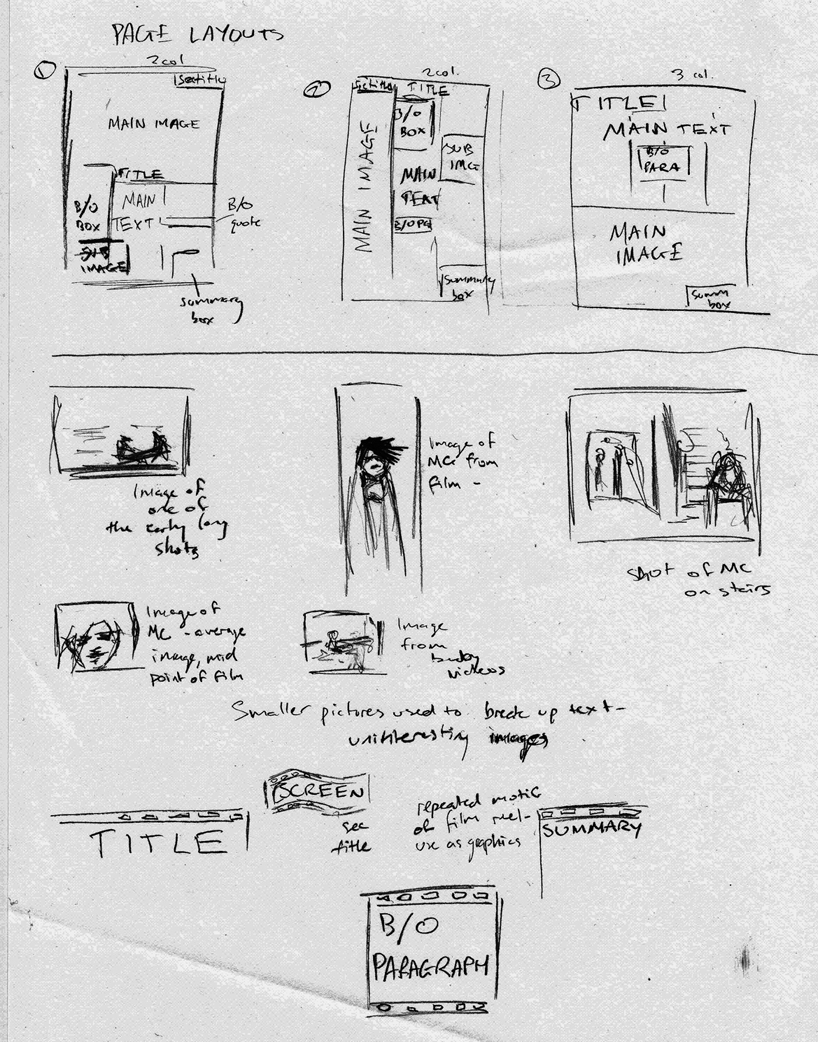 PAGE LAYOUTS
①
2 col
Sectitle
MAIN IMAGE
TITLE
MAIN
TEXT
B/O
BOX
B/O
quote
SUB
IMAGE
summary
box
②
2 col.
TITLE
MAIN IMAGE
B/O
BOX
SUB
IMG
MAIN
TEXT
Summary
box
③
3 col.
TITLE
MAIN TEXT
B/O
PARA
MAIN
IMAGE
Summ
box
Image of
one of
the early long
shots
Image of
MC from
film -
Shot of MC
on stairs
Image of
MC - average
image, mid
point of film
Image
from
Smaller pictures used to break up text -
uninteresting images
TITLE
SCREEN
sec
title
repeated motif
of film reel -
use as graphics
SUMMARY
B/O
PARAGRAPH